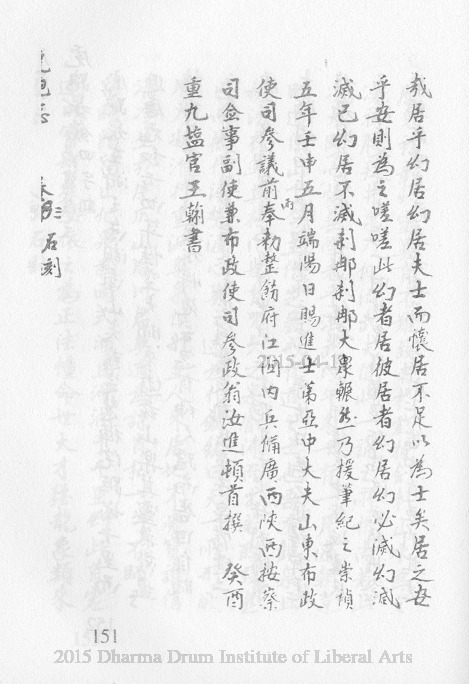 哉居乎幻居幻居夫士而懷居不足以為士矣居之安
乎安則為之嗟嗟此幻者居彼居者幻居幻必滅幻滅
滅已幻居不滅剎那剎那大眾囅然乃援筆紀之崇禎
五年壬申五月端陽日賜進士第亞中大夫山東布政
使司參議前奉勅整飭府江園內兵備廣西陝西按察
丙
司僉事副使兼布政使司參政翁汝進頓首撰 癸酉
重九塩官王翰書
石刻
151
2015-04-1
2015 Dharma Drum Institute of Liberal Arts